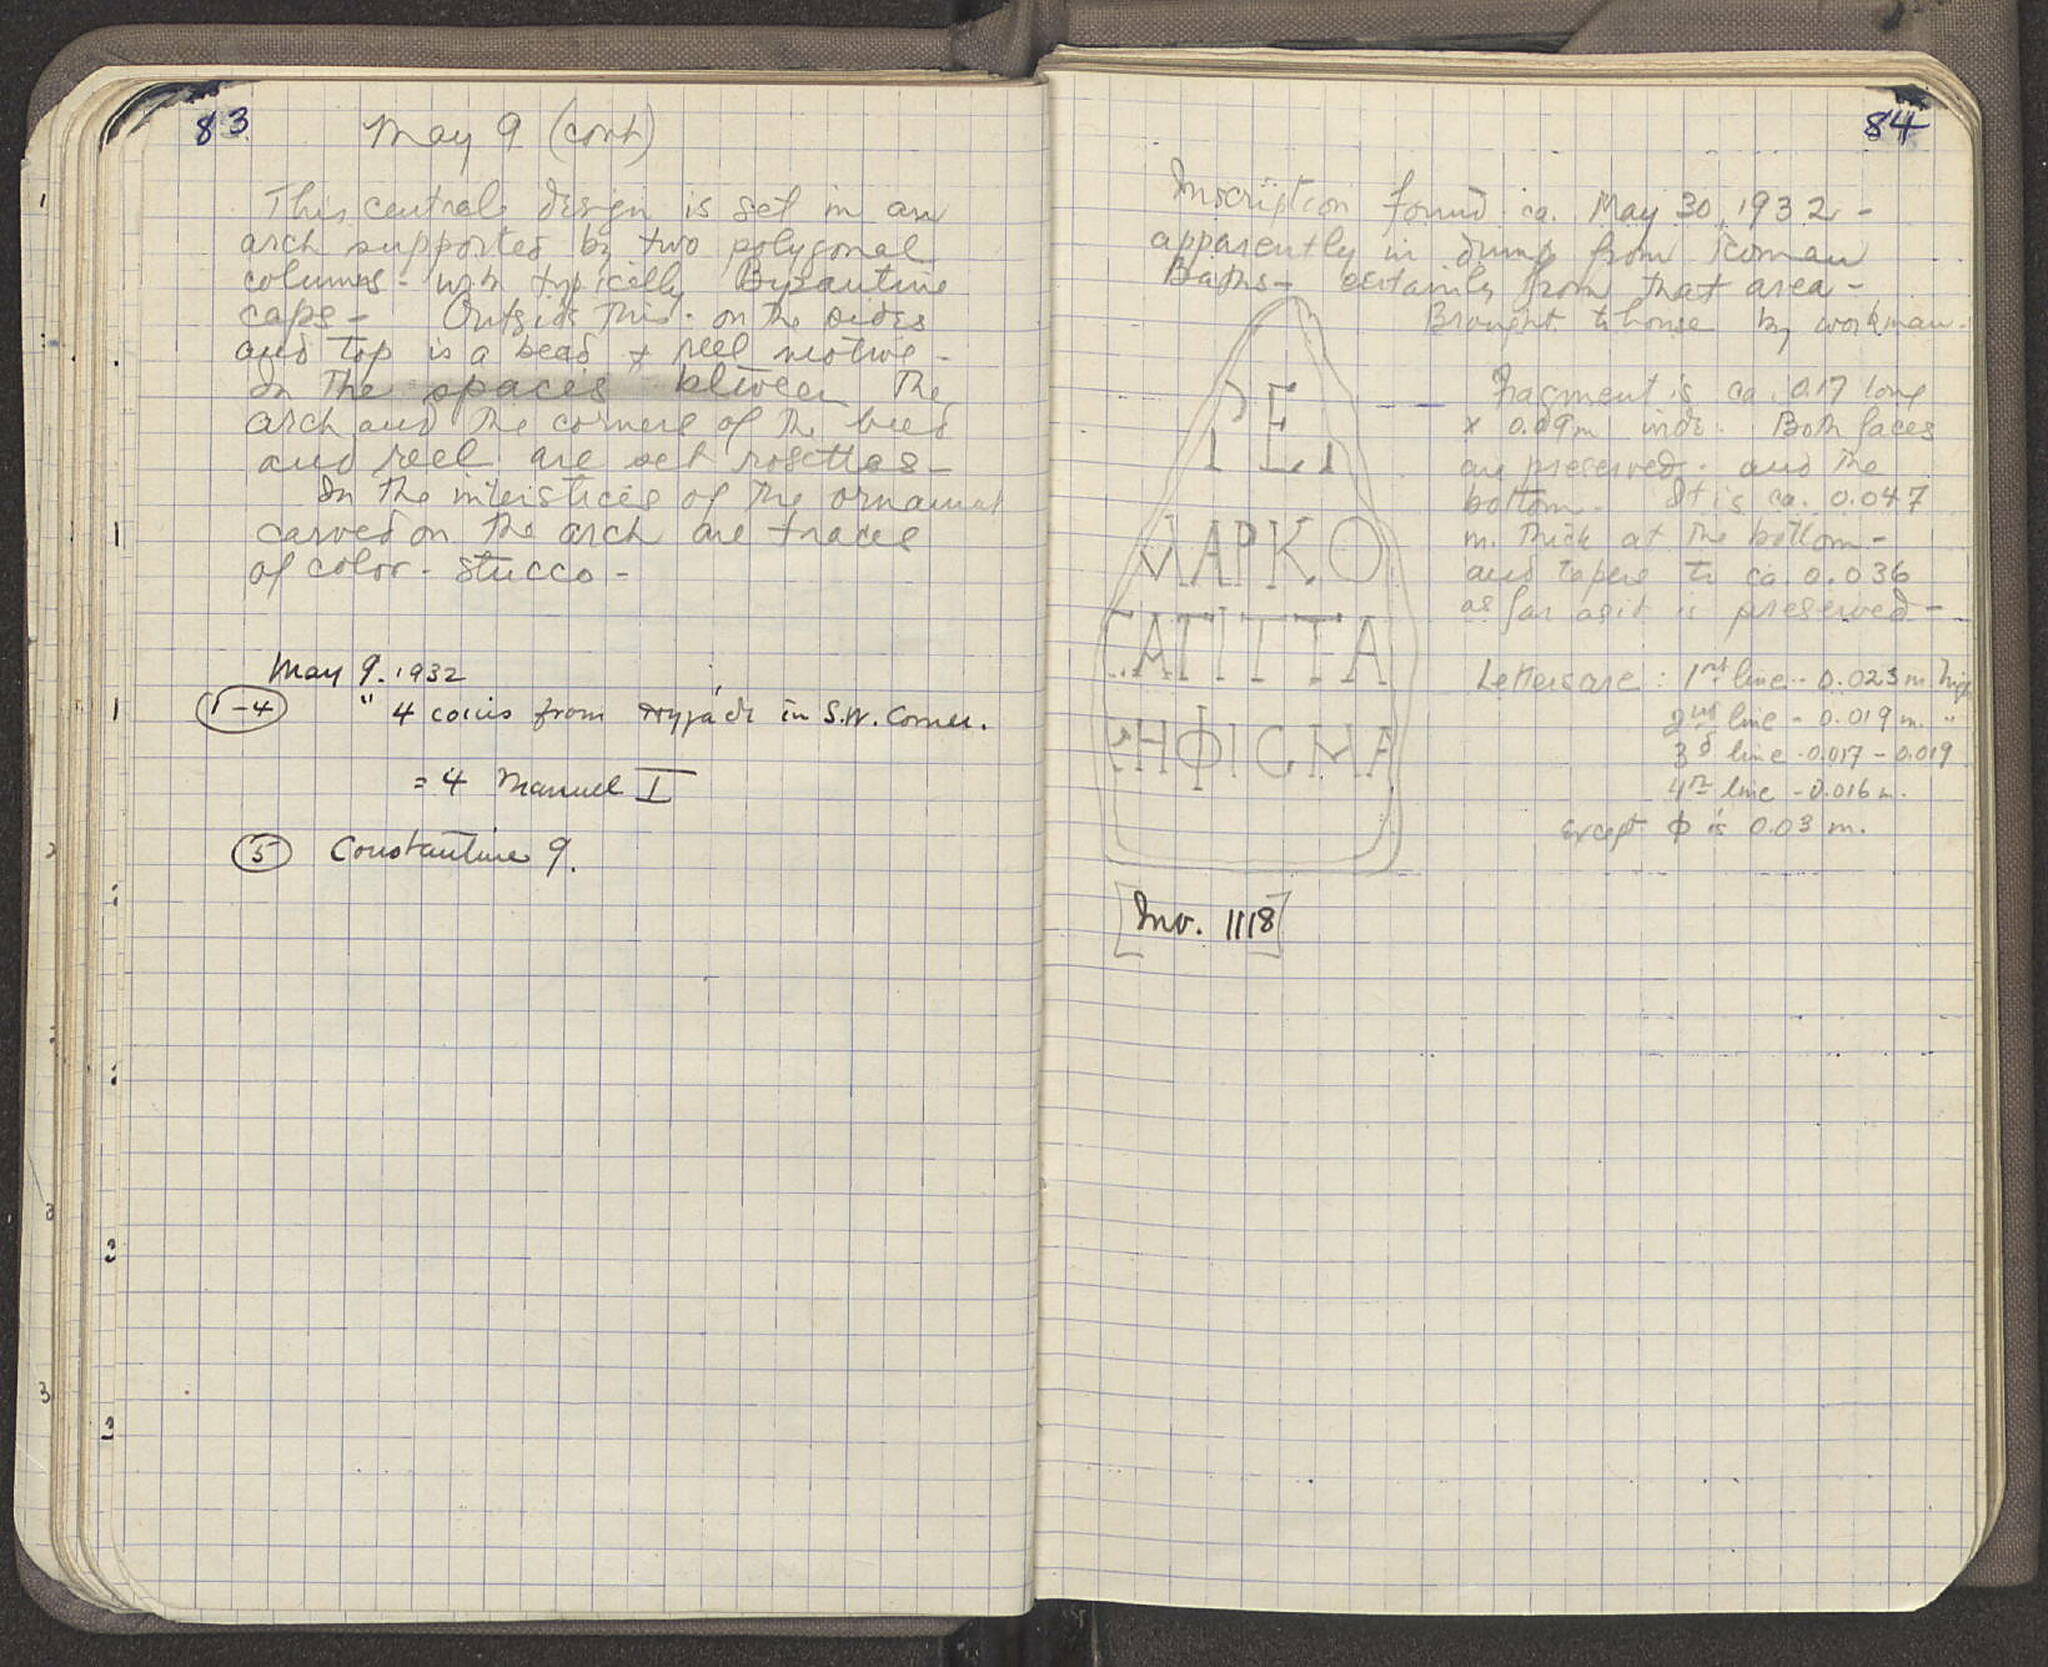 83
May 9 (cont)
This central design is set in an
arch supported by two polygonal
columns - with typically Byzantine
caps - Outside this - on the sides
and top is a bead & reel motive -
In the spaces between the
arch and the corners of the bead
and reel are set rosettes -
In the interstices of the ornament
carved on the arch are traces
of color - stucco -
May 9. 1932
1-4 " 4 coins from πηγάδι in S.W. Corner.
= 4 Manuel I
5 Constantine 9.
84
Inscription found ca. May 30, 1932 -
apparently in dump from Roman
Baths - certainly from that area -
Brought to house by workman.
ΡΕΙ
ΜΑΡΚΟ
ΓΑΠΙΤΤΑ
ΕΗΦΙCΜΑ
Fragment is ca. 0.17 long
x 0.09m wide. Both faces
are preserved - and the
bottom. It is ca. 0.047
m. thick at the bottom -
and tapers to ca. 0.036
as far as it is preserved -
Letters are: 1st line - 0.023 m high
2nd line - 0.019 m. "
3d line - 0.017 - 0.019
4th line - 0.016 m.
except Φ is 0.03 m.
[Inv. 1118]